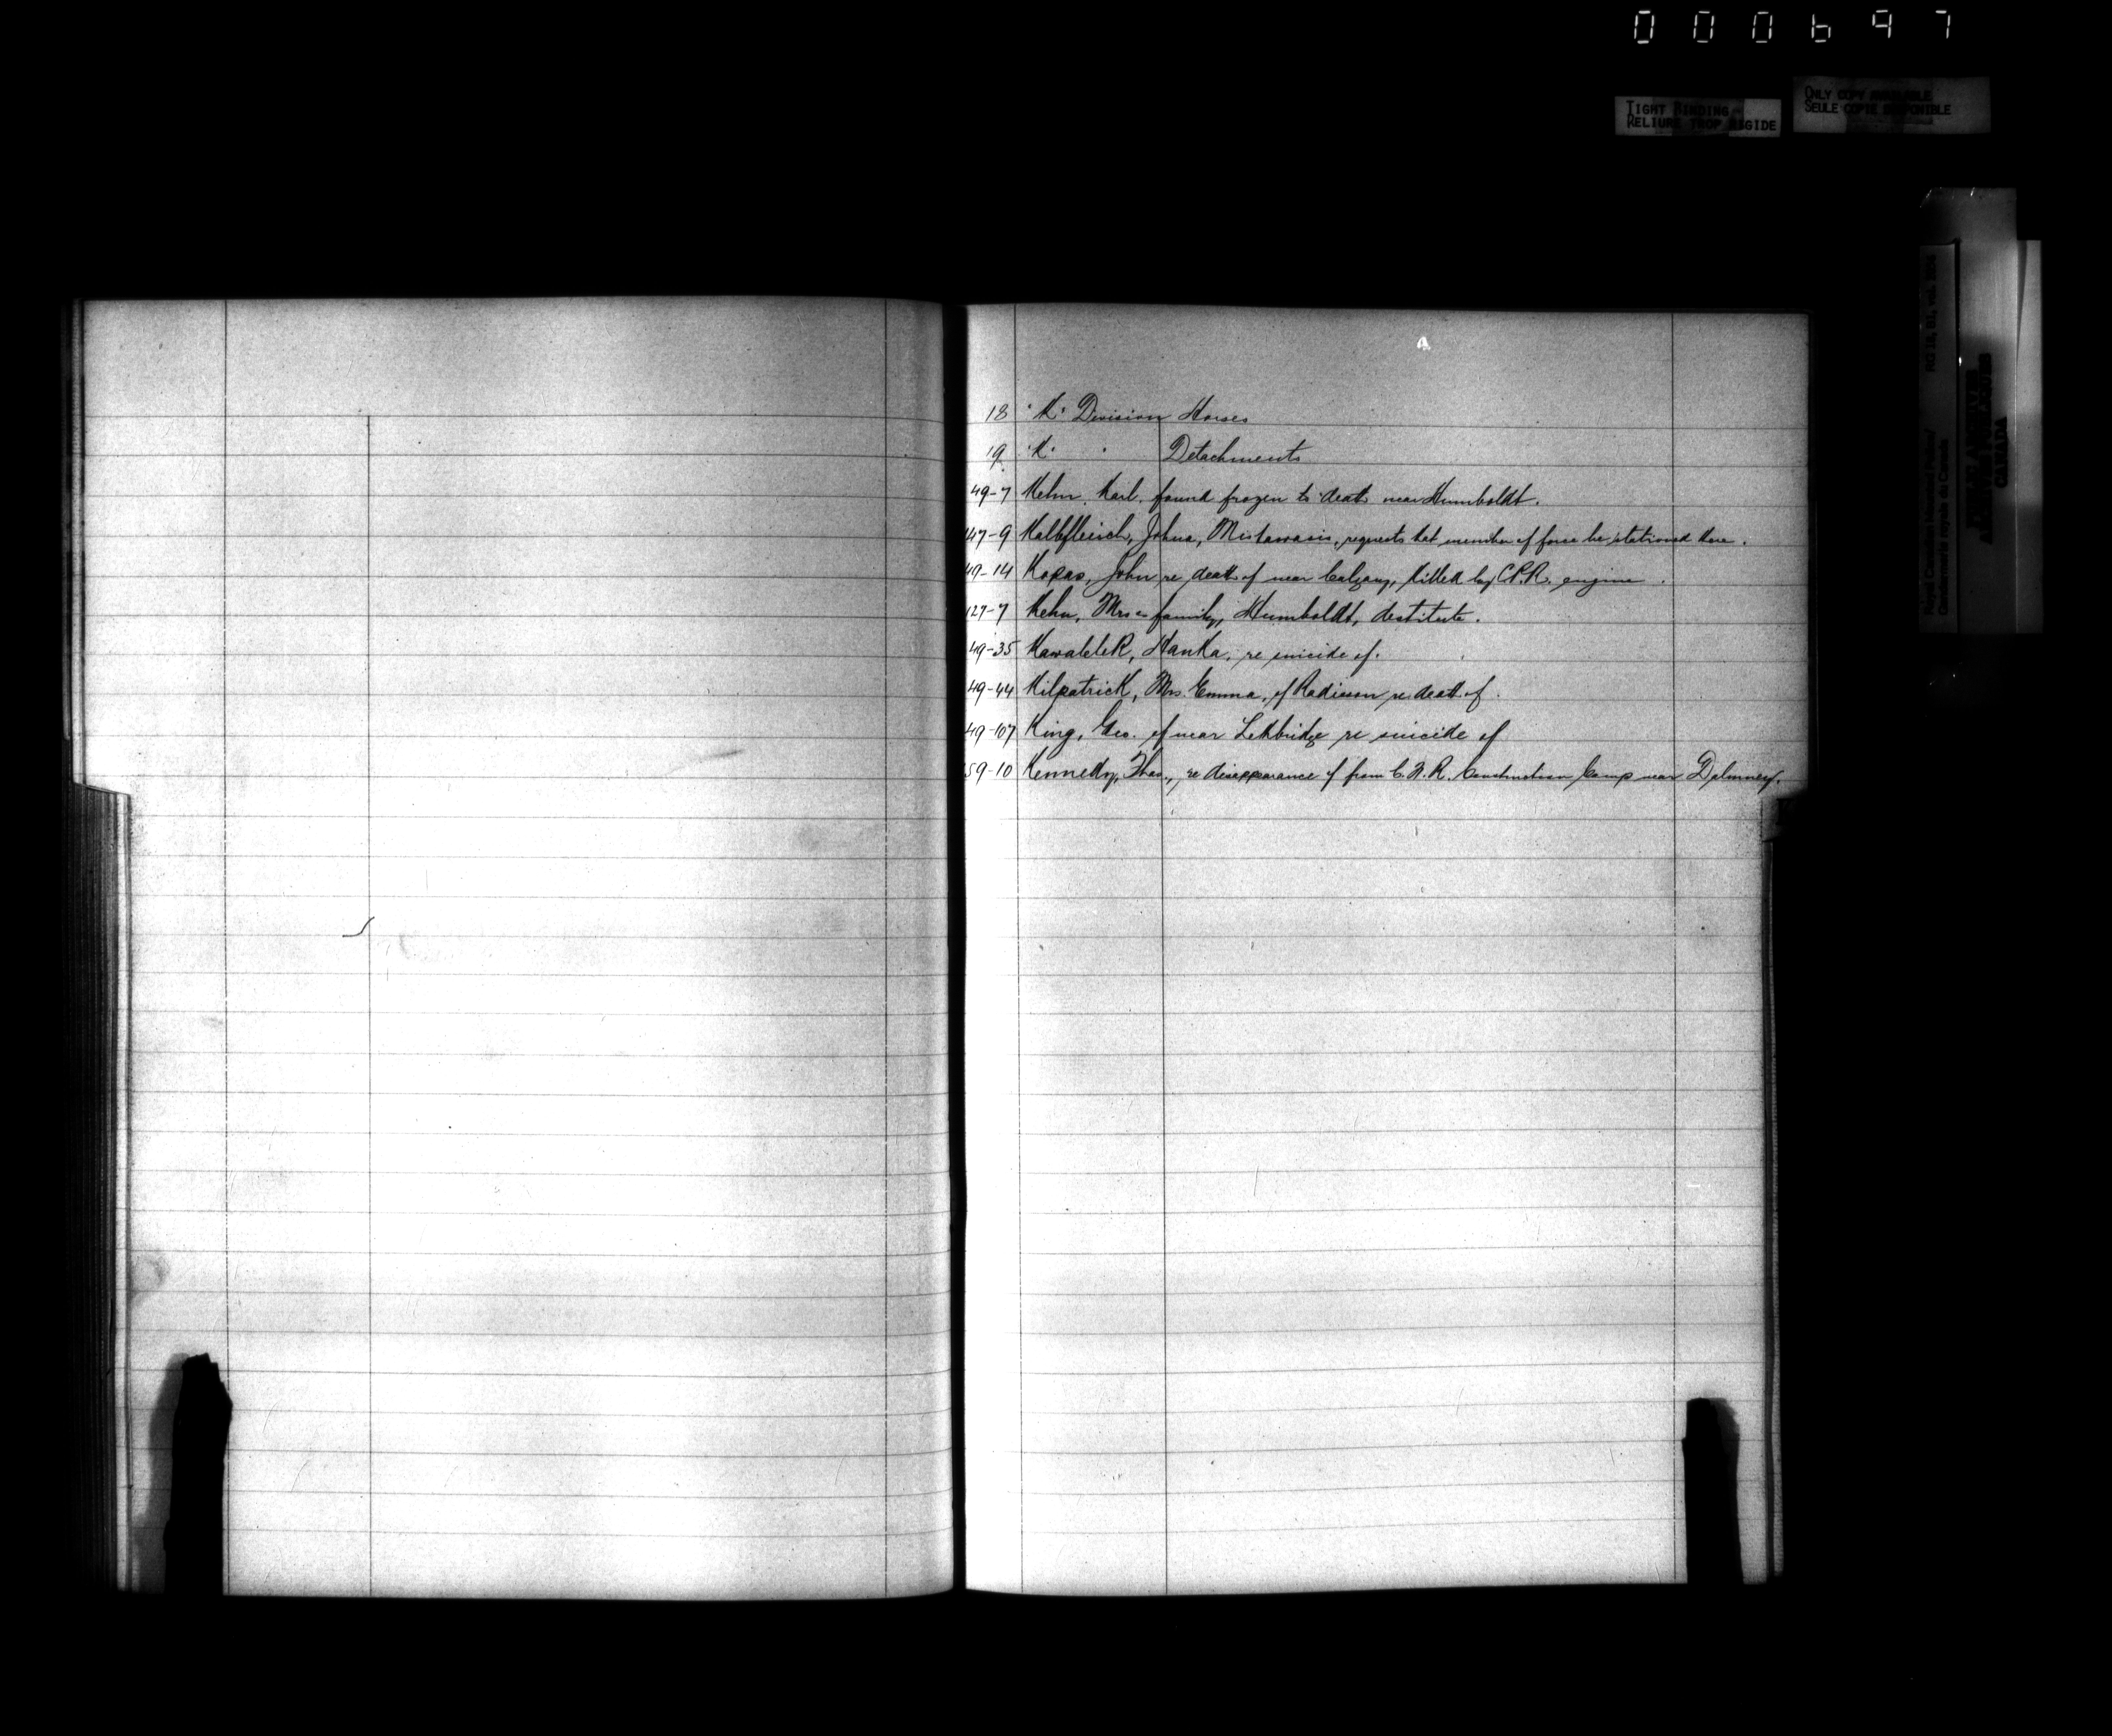 000697
TIGHT BINDING
RELIURE TROP RIGIDE
ONLY COPY AVAILABLE
SEULE COPIE DISPONIBLE
18 "K" Division Horses
19 "K" " Detachments
49-7 Kehn, Karl. found frozen to death near Humboldt.
147-9 Kalbfleisch, Johna, Mistawasis, requests that member of force be stationed there.
49-14 Kopas, John re death of near Calgary, killed by C.P.R. engine.
127-7 Kehn, Mrs & family, Humboldt, destitute.
49-35 Kawalelek, Hanka, re suicide of.
49-44 Kilpatrick, Mrs. Emma, of Radisson re death of.
49-107 King, Geo. of near Lethbridge re suicide of
59-10 Kennedy, Thos., re disappearance of from C.N.R. Construction Camp near Dalmeny.
RG 18, B1, vol.
Royal Canadian Mounted Police/
Gendarmerie royale du Canada
PUBLIC ARCHIVES
ARCHIVES PUBLIQUES
CANADA